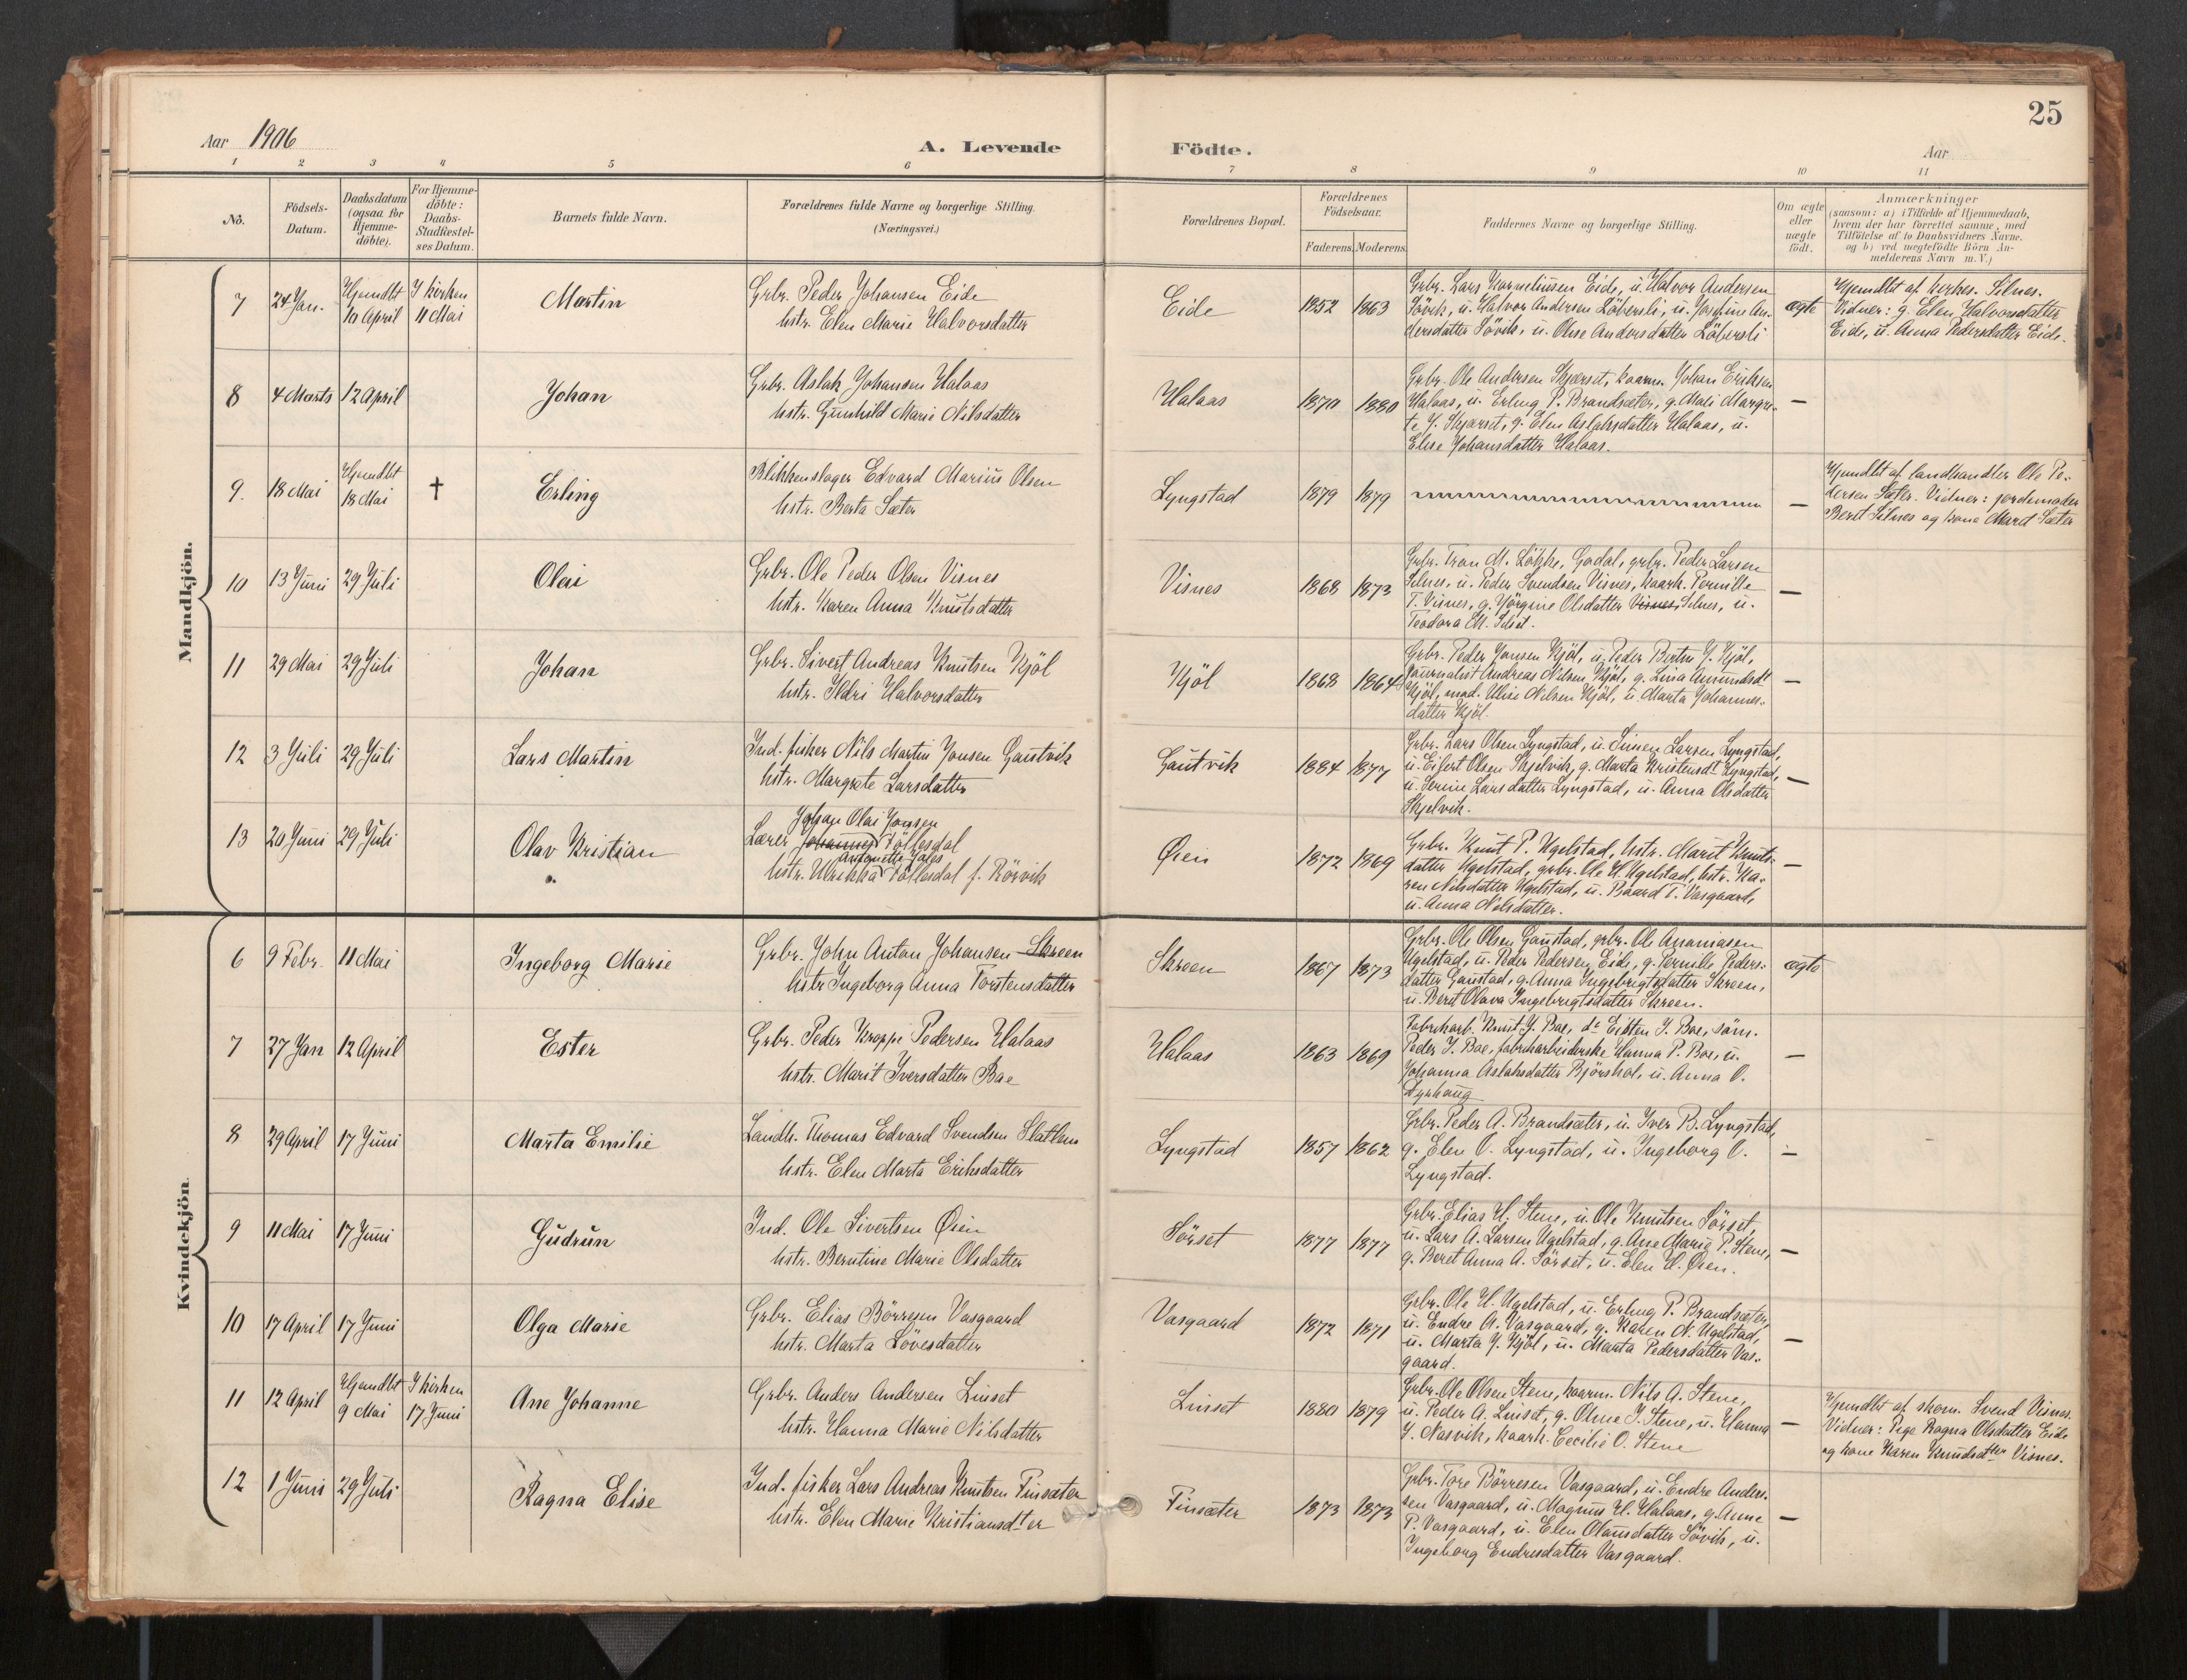 25
Aar 1906
A. Levende Födte.
Aar
1 2 3 4 5 6 7 8 9 10 11
No.
Födsels-Datum.
Daabsdatum (ogsaa for Hjemme-döbte).
For Hjemme-döbte: Daabs-Stadfæstel-ses Datum.
Barnets fulde Navn.
Forældrenes fulde Navne og borgerlige Stilling. (Næringsvei.)
Forældrenes Bopæl.
Forældrenes Födselsaar.
Faderens. Moderens.
Faddernes Navne og borgerlige Stilling.
Om ægte eller uægte födt.
Anmærkninger
(saasom: a) i Tilfælde af Hjemmedaab,
hvem der har forrettet samme, med
Tilföielse af to Daabsvidners Navne.
og b) ved uægtefödte Börn An-
melderens Navn m.V.)
Mandkjön.
7 24 Jan. Hjemdbt 10 April I kirken 11 Mai Martin
Grbr. Peder Johansen Eide
hstr. Elen Marie Halvorsdatter
Eide 1852 1863
Grbr. Lars Korneliussen Eide, u. Halvor Andersen
Sövik, u. Halvor Andersen Löbersli, u. Josefine An-
dersdatter Sövik, u. Oluse Andersdatter Löbersli
ægte
Hjemdbt af kirkes. Silnes.
Vidner: g. Elen Halvorsdatter
Eide, u. Anna Pedersdatter Eide.
8 4 Marts 12 April Johan
Grbr. Aslak Johansen Halaas
hstr. Gunhild Marie Nilsdatter
Halaas 1870 1880
Grbr. Ole Andersen Skjørset, kaarm. Johan Eriksen
Halaas, u. Erling P. Brandsæter, g. Mali Margre-
te J. Skjærset, g. Elen Aslaksdatter Halaas, u.
Elise Johansdatter Halaas.
—
9. 18 Mai Hjemdbt 18 Mai † Erling
Blikkenslager Edvard Marius Olsen
hstr. Berta Sæter
Lyngstad 1879 1879 —
Hjemdbt af landhandler Ole Pe-
dersen Sæter. Vidner: jordemoder
Beret Silnes og kone Marit Sæter
10 13 Juni 29 Juli Olai
Grbr. Ole Peder Olsen Visnes
hstr. Karen Anna Knutsdatter
Visnes 1868 1873
Grbr. Tron M. Lökke, Godal, grbr. Peder Larsen
Silnes, u. Peder Svendsen Visnes, kaark. Pernille
T. Visnes, g. Jörgine Olsdatter Visnes, Silnes, u.
Teodora M.
—
11 29 Mai 29 Juli Johan
Grbr. Sivert Andreas Knutsen Kjöl
hstr. Ildri Halvorsdatter
Kjöl 1868 1864
Grbr. Peder Jonsen Kjöl, u. Peder J. Kjöl,
journalist Andreas Nilsen Kjöl, g. Lina Amundsdt
Kjöl, mad. Nilsen Kjöl, u. Marta Johannes-
datter Kjöl.
—
12 3 Juli 29 Juli Lars Martin
Ind. fisker Nils Martin Jonsen Gautvik
hstr. Margrete Larsdatter
Gautvik 1884 1877
Grbr. Lars Olsen Lyngstad, u. Simen Larsen Lyngstad,
u. Eifert Olsen Skjelvik, g. Marta Kristensdt Lyngstad,
u. Serine Larsdatter Lyngstad, u. Anna Olsdatter
Skjelvik.
—
13 20 Juni 29 Juli Olav Kristian
Johan Olai Jonsen
Lærer Johannes Föllesdal
Antonette
hstr. Ulrikka Föllesdal f. Rörvik
Øien 1872 1869
Grbr. Knut P. Ugelstad, hstr. Marit Knuts-
datter Ugelstad, grbr. Ole H. Ugelstad, hstr. Ka-
ren Nilsdatter Ugelstad, u. Baard T. Vasgaard,
u. Anna Nilsdatter.
—
Kvindekjön
6 9 Febr. 11 Mai Ingeborg Marie
Grbr. John Anton Johansen Skreen
hstr Ingeborg Anna Torstensdatter
Skreen 1867 1873
Grbr. Ole Olsen Gaustad, grbr. Ole Ananiasen
Ugelstad, u. Peder Pedersen Eide, g. Pernille Peders-
datter Gaustad, g. Anna Ingebrigtsdatter Skreen,
u. Beret Olava Ingebrigtsdatter Skreen.
ægte
7 27 Jan 12 April Ester
Grbr. Peder Kroppe Pedersen Halaas
hstr. Marit Iversdatter Bae
Halaas 1863 1869
Fabrikarb. Knut J. Bae, do Eisten J. Bae, söm.
Peder J. Bae, fabrikarbeiderske Hanna P. Bae, u.
Johanna Aslaksdatter Björshol, u. Anna O.
Dyrhaug
—
8 29 April 17 Juni Marta Emilie
Landh. Thomas Edvard Svendsen Slatlem
hstr. Elen Marta Eriksdatter
Lyngstad 1857 1862
Grbr. Peder A. Brandsæter, u. Iver B. Lyngstad,
g. Elen O. Lyngstad, u. Ingeborg O.
Lyngstad.
—
9 11 Mai 17 Juni Gudrun
Ind. Ole Sivertsen Øien
hstr. Berntine Marie Olsdatter
Sörset 1877 1877
Grbr. Elias H. Stene, u. Ole Knutsen Sörset,
u. Lars A. Larsen Ugelstad, g. Ane Marie P. Stene,
g. Beret Anna A. Sörset, u. Elen H. Øien.
—
10 17 April 17 Juni Olga Marie
Grbr. Elias Börresen Vasgaard
hstr. Marta Sövesdatter
Vasgaard 1872 1871
Grbr. Ole H. Ugelstad, u. Erling P. Brandsæter,
u. Endre A. Vasgaard, g. Karen N. Ugelstad,
u. Marta J. Kjöl, u. Marta Pedersdatter Vas-
gaard.
—
11 12 April Hjemdbt 9 Mai I kirken 17 Juni Ane Johanne
Grbr. Anders Andersen Linset
hstr. Hanna Marie Nilsdatter
Linset 1880 1879
Grbr. Ole Olsen Stene, kaarm. Nils A. Stene,
u. Peder A. Linset, g. Oline J. Stene, u. Hanna
J. Nasvik, kaark. Cecilie O. Stene
—
Hjemdbt af skom. Svend Visnes.
Vidner: Pige Ragna Olsdatter Eide
og kone Karen Knudsdtter Visnes.
12 1 Juni 29 Juli Ragna Elise
Ind. fisker Lars Andreas Knutsen Finsæter
hstr. Elen Marie Kristiansdtter
Finsæter 1873 1873
Grbr. Tore Börresen Vasgaard, u. Endre Anders-
sen Vasgaard, u. Magnus H. Halaas, g. Anne
P. Vasgaard, u. Elen Olausdatter Sövik, u.
Ingeborg Endresdatter Vasgaard.
—